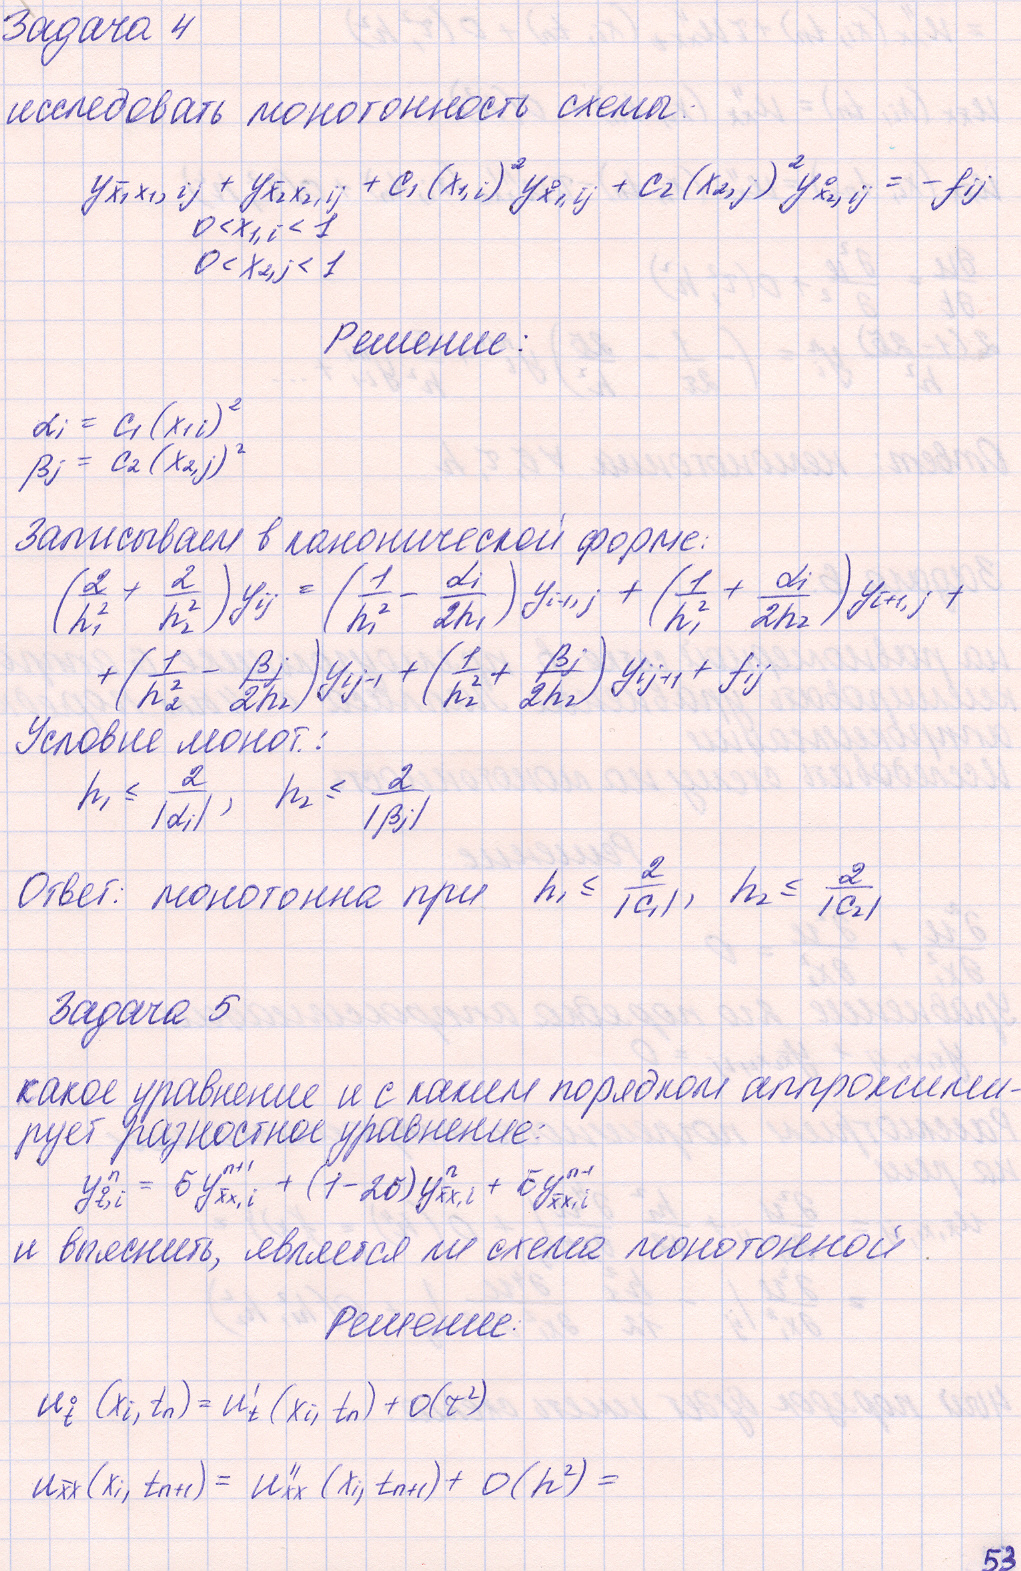 Задача 4
исследовать монотонность схемы:
y_{x̄₁x₁,ij} + y_{x̄₂x₂,ij} + c₁(x₁,i)² y_{x̊₁,ij} + c₂(x₂,j)² y_{x̊₂,ij} = -f_{ij}
0 < x₁,i < 1
0 < x₂,j < 1
Решение:
αi = c₁(x₁i)²
βj = c₂(x₂,j)²
Записываем в канонической форме:
(2/h₁² + 2/h₂²) y_{ij} = (1/h₁² - αi/2h₁) y_{i-1,j} + (1/h₁² + αi/2h₂) y_{i+1,j} +
+ (1/h₂² - βj/2h₂) y_{ij-1} + (1/h₂² + βj/2h₂) y_{ij+1} + f_{ij}
Условие монот.:
h₁ ≤ 2/|αi|, h₂ ≤ 2/|βj|
Ответ: монотонна при h₁ ≤ 2/|c₁|, h₂ ≤ 2/|c₂|
Задача 5
какое уравнение и с каким порядком аппроксими-
рует разностное уравнение:
yⁿ_{t̊,i} = б yⁿ⁺¹_{x̄x,i} + (1-2б) yⁿ_{x̄x,i} + б yⁿ⁻¹_{x̄x,i}
и выяснить, является ли схема монотонной.
Решение:
u_{t̊}(xi, tn) = u'_t(xi, tn) + O(τ²)
u_{x̄x}(xi, tn+1) = u''_{xx}(xi, tn+1) + O(h²) =
53